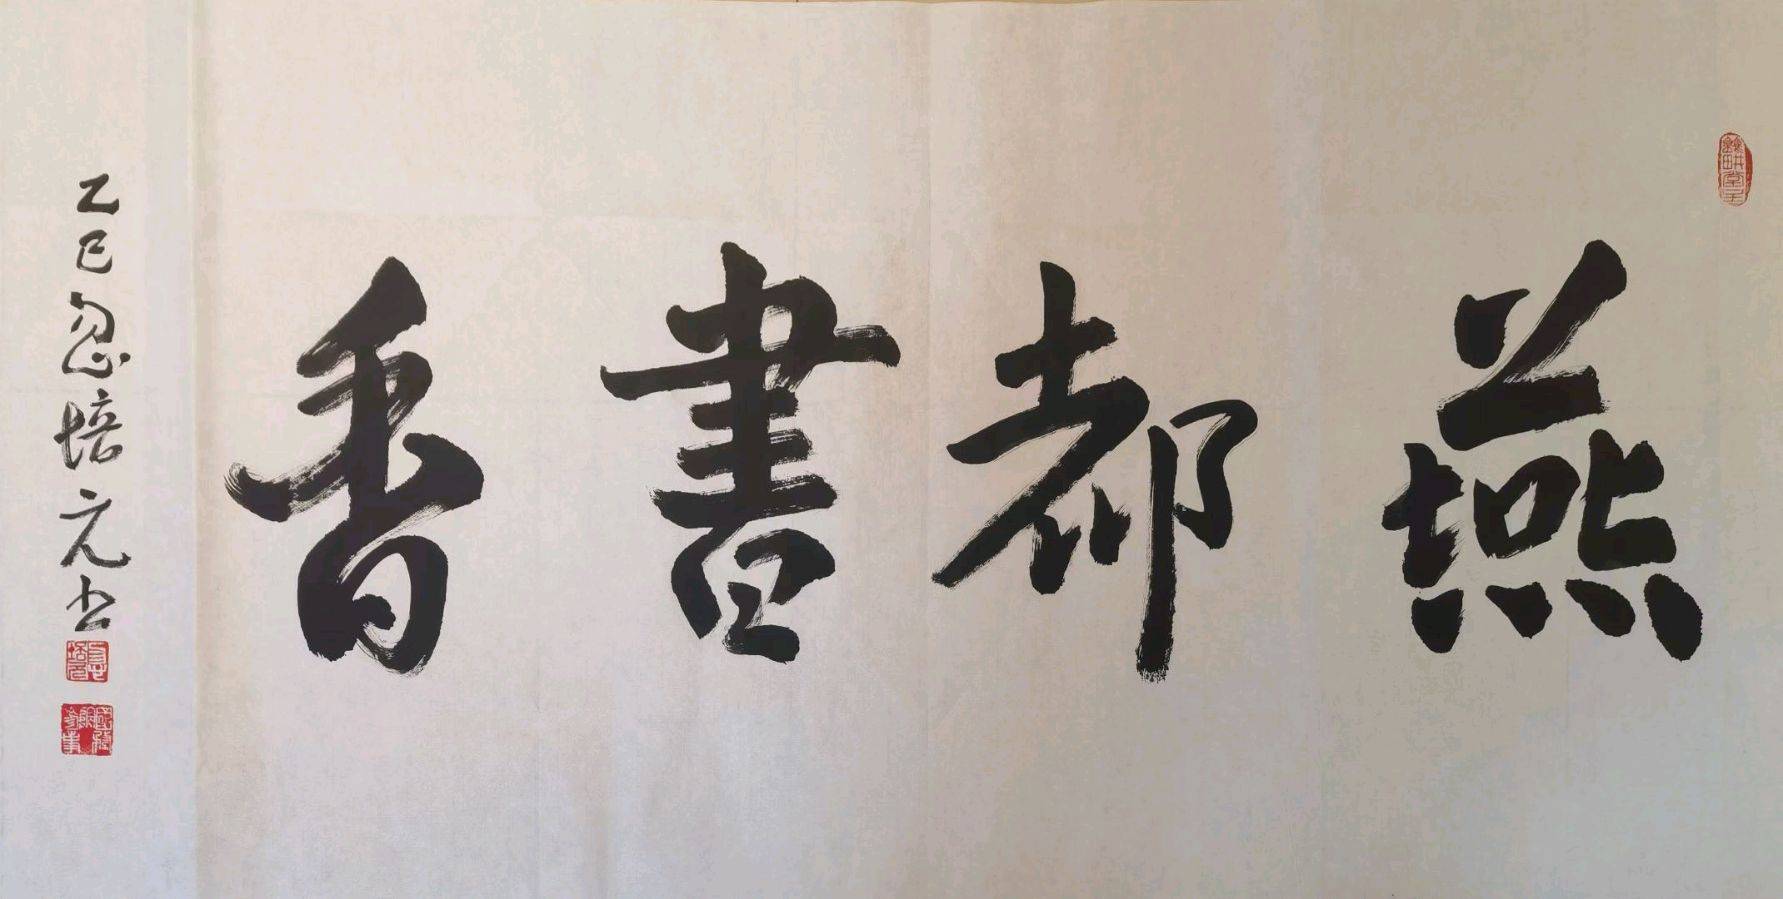 燕都書香
乙巳忽培元书